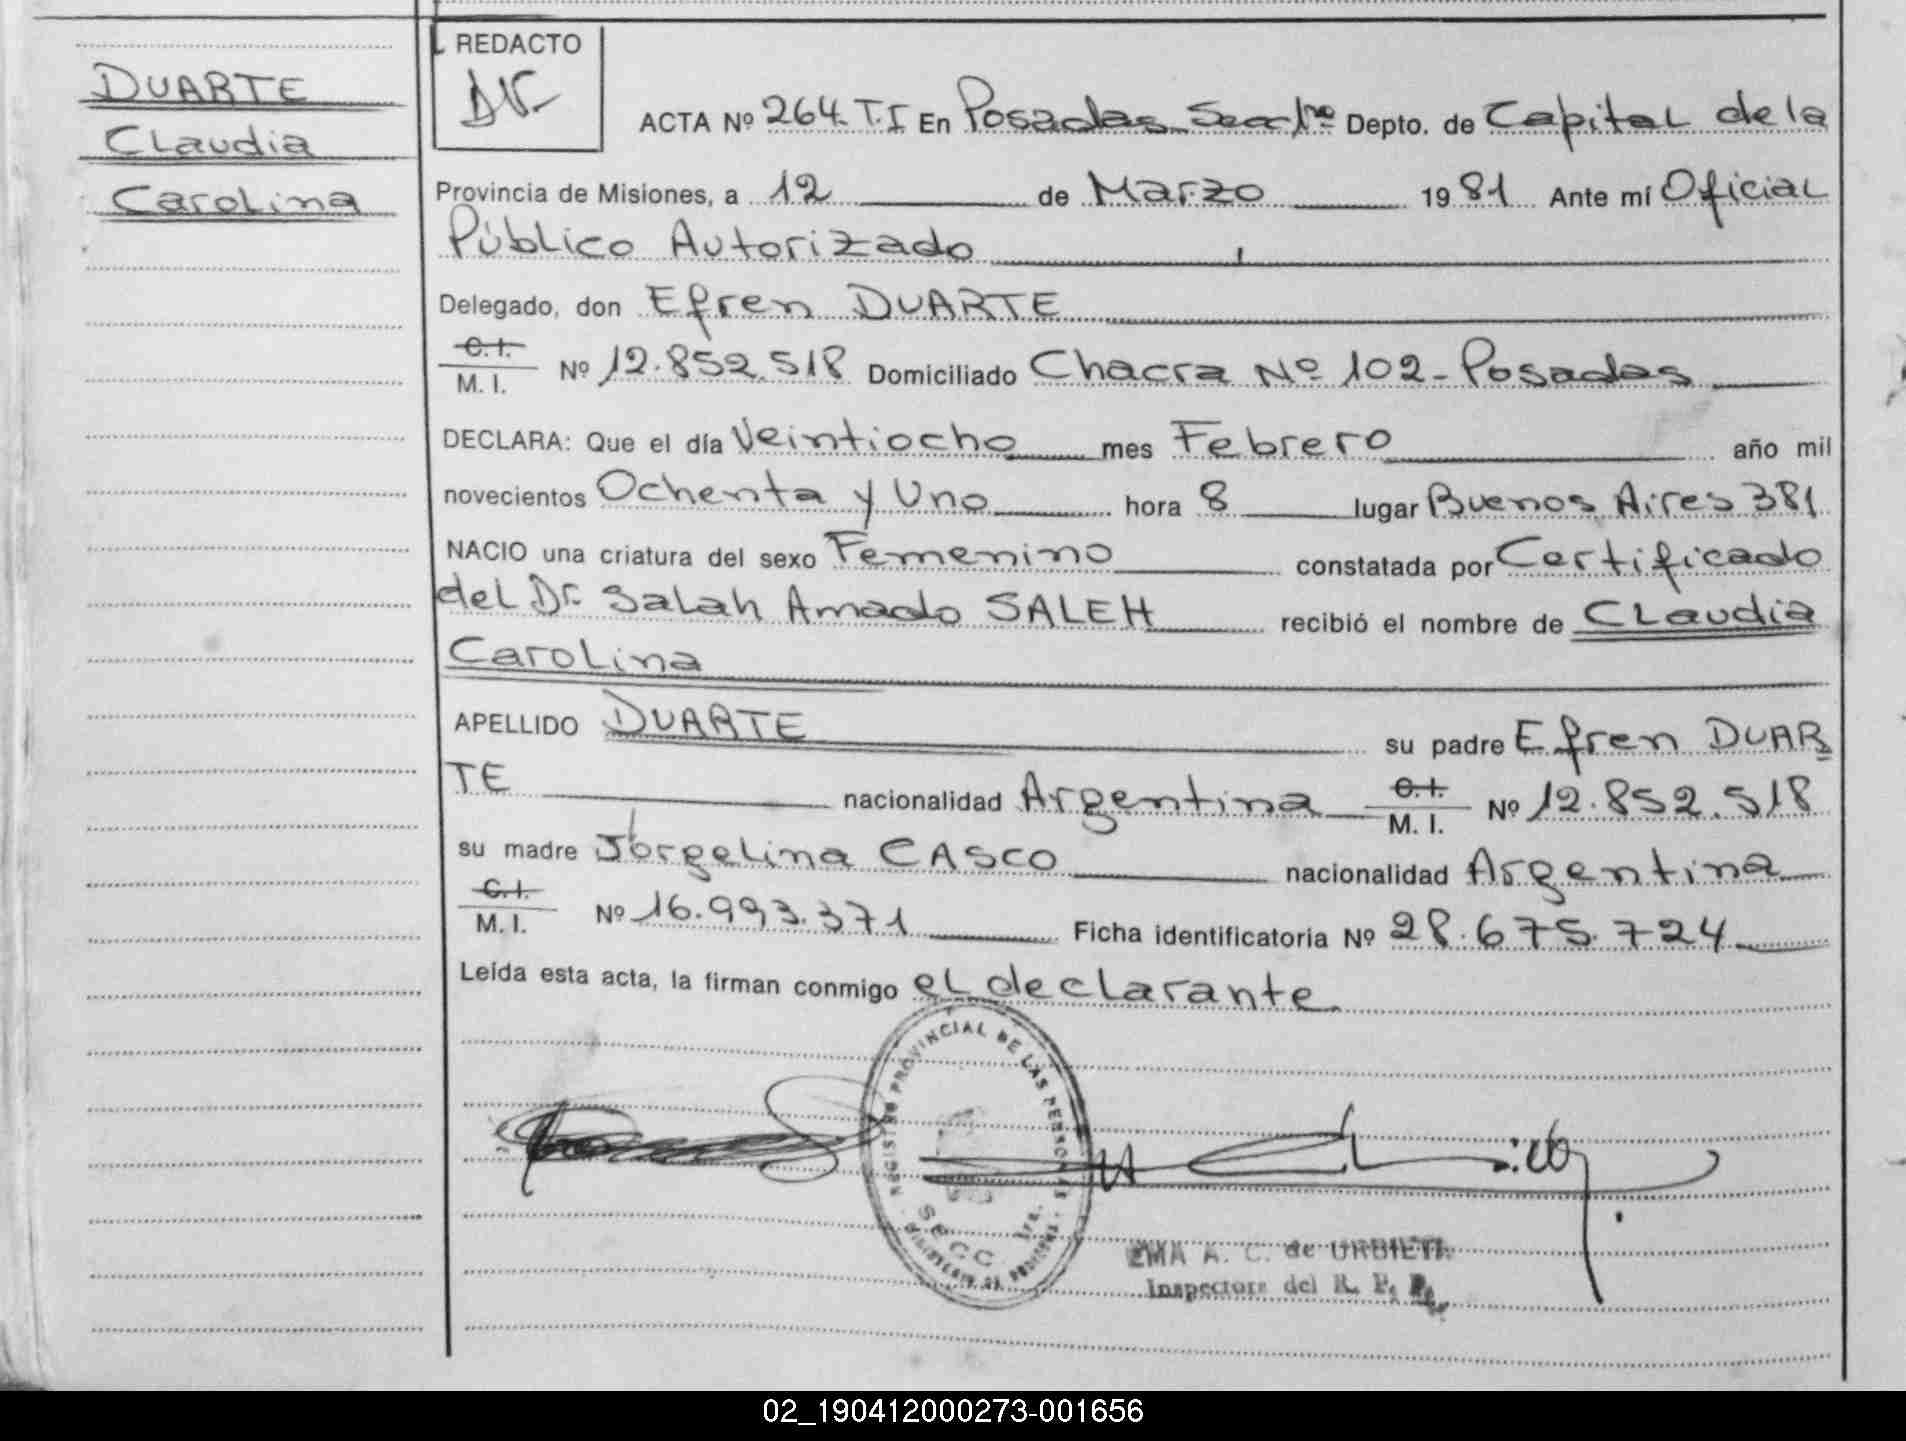 DUARTE
Claudia
Carolina
REDACTO
ACTA Nº 264. T.I En Posadas Secc 1ra Depto. de Capital de la
Provincia de Misiones, a 12 de Marzo 1981 Ante mí Oficial
Público Autorizado
Delegado, don Efren DUARTE
C.I.
M. I. Nº 12.852.518 Domiciliado Chacra Nº 102 - Posadas
DECLARA: Que el día Veintiocho mes Febrero año mil
novecientos Ochenta y Uno hora 8 lugar Buenos Aires 381
NACIO una criatura del sexo Femenino constatada por Certificado
del Dr. Salah Amado SALEH recibió el nombre de Claudia
Carolina
APELLIDO DUARTE su padre Efren DUAR
TE nacionalidad Argentina C.I. M. I. Nº 12.852.518
su madre Jorgelina CASCO nacionalidad Argentina
C.I.
M. I. Nº 16.993.371 Ficha identificatoria Nº 28.675.724
Leída esta acta, la firman conmigo el declarante
REGISTRO PROVINCIAL DE LAS PERSONAS
SECC. 1ra.
EMA A. C. de URBIETA
Inspectora del R. P. P.
02_190412000273-001656